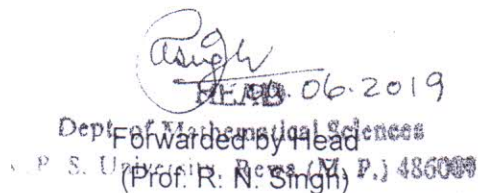 HEAD 06.2019
Dept. of Mathematical Sciences
Forwarded by Head
A. P. S. University, Rewa (M. P.) 486003
(Prof. R. N. Singh)